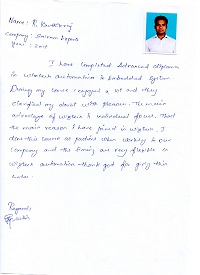 Name: R.
Company: Sairam
Year: 2019
I have completed Advanced diploma
in Wipteck automation in Embedded System
During my course I enjoyed a lot and they
clarified my doubt with pleasure. The main
advantage of Wipteck is individual focus. That
the main reason I have joined in Wipteck. I
done this course as partime when working in our
company and the timing are very flexible in
Wipteck automation thank god for giving this
Regards